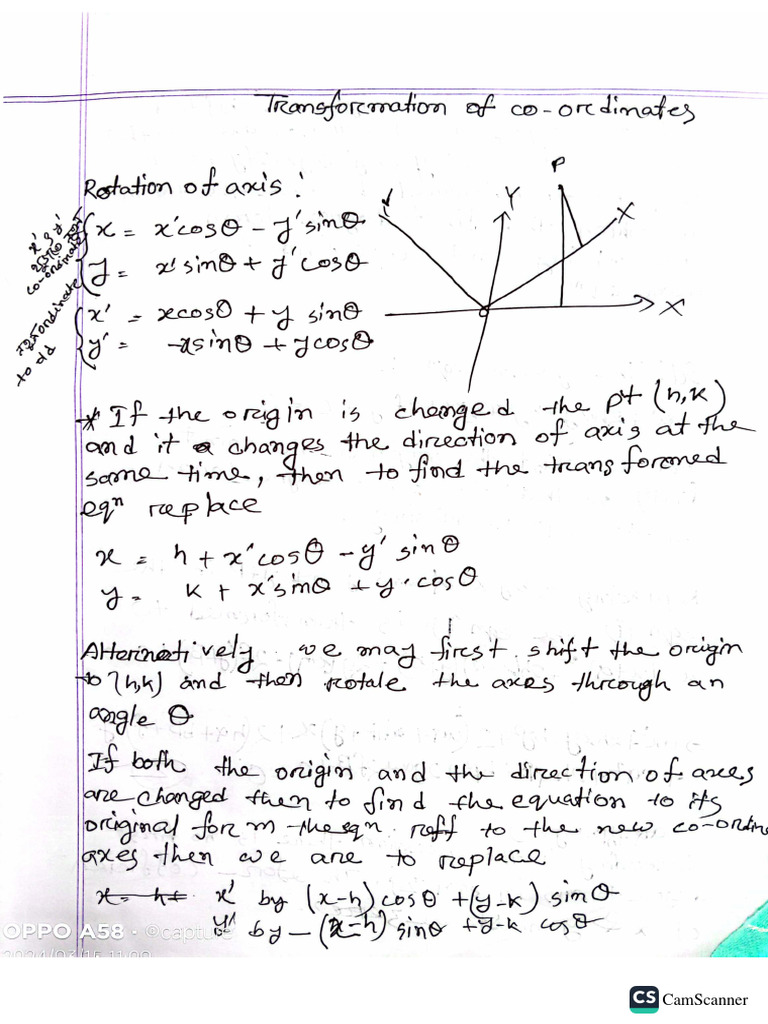 Transformation of co-ordinates
Rotation of axis :
x = x'cosθ - y'sinθ
y = x'sinθ + y'cosθ
x' = xcosθ + y sinθ
y' = -xsinθ + ycosθ
x' & y'
co-ordinate
to old
P
Y
X
X
* If the origin is changed the pt (h,k)
and it changes the direction of axis at the
same time, then to find the transformed
eqⁿ replace
x = h + x'cosθ - y' sinθ
y = k + x'sinθ + y'cosθ
Alternatively we may first shift the origin
to (h,k) and then rotale the axes through an
angle θ
If both the origin and the direction of axes
are changed then to find the equation to its
original form the eqn reff to the new co-ordine
axes then we are to replace
x = h+ x' by (x-h) cosθ +(y-k) sinθ
y' by -(x-h) sinθ +y-k cosθ
OPPO A58 · ©capture
2024/03/15 11:00
CS CamScanner